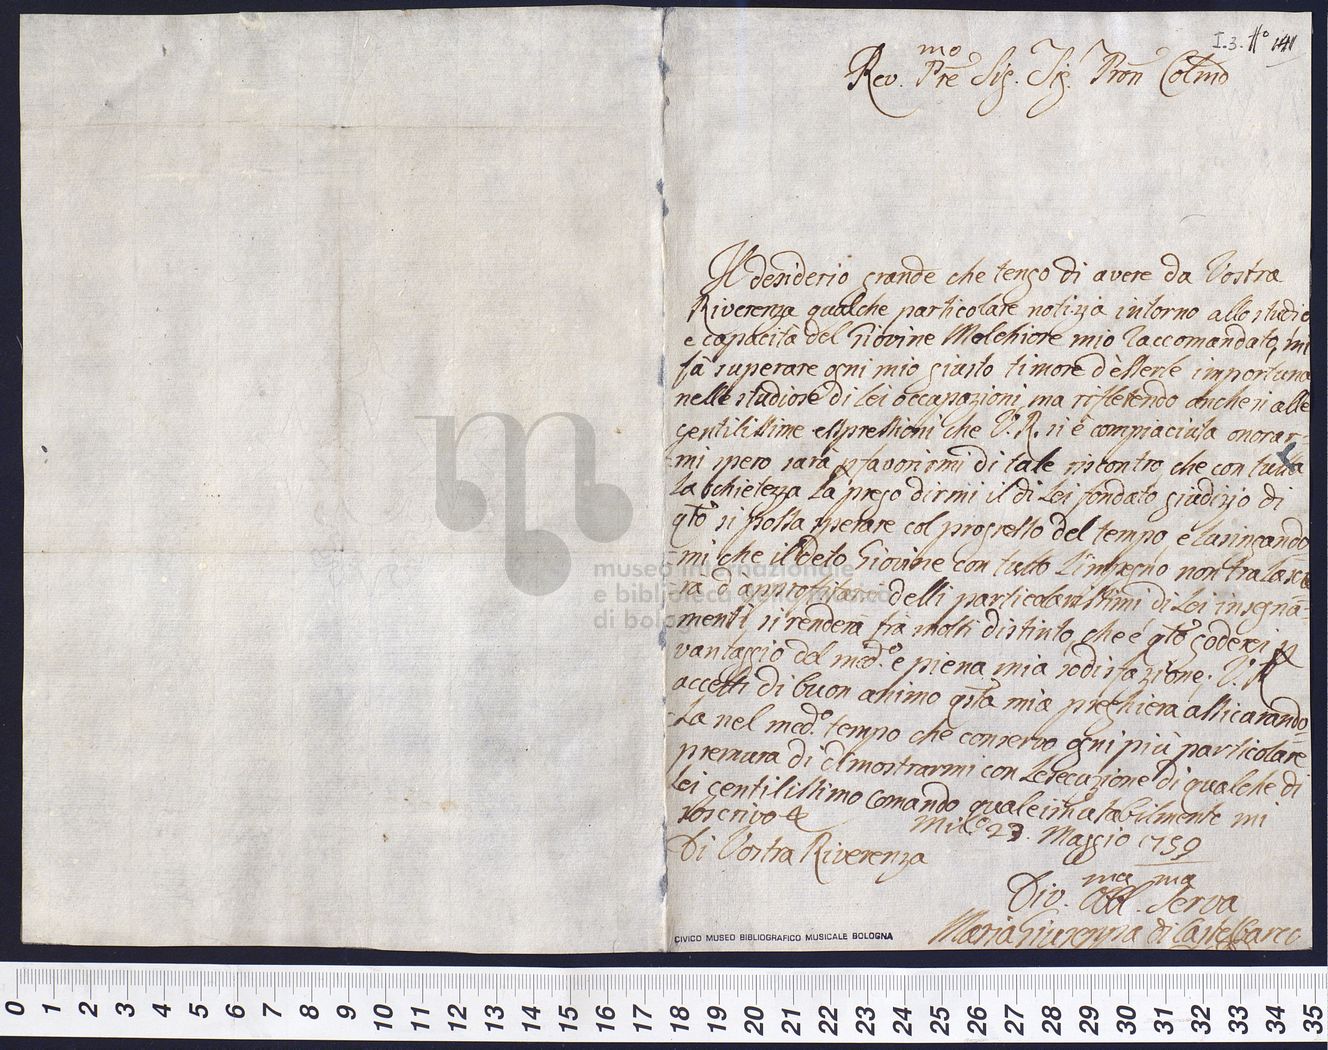 I.3. No 141
Rev.mo Pre Sig. Sig. Pron Colmo
Il desiderio grande che tengo di avere da Vostra
Riverenza qualche particolare notizia intorno allo studio
e capacità del Giovine Melchiore mio raccomandato, mi
fà superare ogni mio giusto timore d'esserle importuna
nelle studiose di Lei occupazioni, ma rifletendo anche si alle
gentilissime espressioni che V.R. si è compiaciuta onorar=
=mi spero sarà p favorirmi di tale riscontro, che con tutta
la schietezza la prego dirmi il di Lei fondato giudizio di
qto si possa sperare col progresso del tempo, e lusingando=
=mi che il deto Giovine con tutto l'impegno non tralascie=
=rà d'approfitarsi delli particolarissimi di Lei insegna=
=menti, si renderà frà molti distinto, che è qto goderei p
vantaggio del medo. e piena mia sodisfazione. V.R.
accetti di buon animo qsta mia preghiera assicurando=
=la nel medo. tempo che conservo ogni più particolare
premura di dimostrarmi con l'esecuzione di qualche di
Lei gentilissimo comando, quale imutabilmente mi
soscrivo &
Milo 23. Maggio 1759
Di Vostra Riverenza
Div.ma Obl.ma Serva
Maria Giuseppa di Castelbarco
museo internazionale
e biblioteca della musica
di bologna
CIVICO MUSEO BIBLIOGRAFICO MUSICALE BOLOGNA
0 1 2 3 4 5 6 7 8 9 10 11 12 13 14 15 16 17 18 19 20 21 22 23 24 25 26 27 28 29 30 31 32 33 34 35